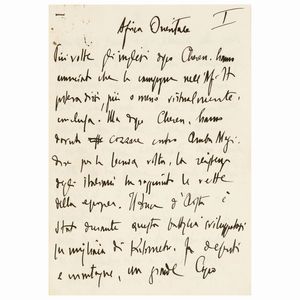 Africa Orientale
I
Più volte gli inglesi dopo Cheren, hanno
annunciato che la campagna nell'Af.
poteva dirsi, più o meno virtualmente,
conclusa. Ma dopo Cheren, hanno
dovuto cozzare contro Amba Alagi.
dove per la terza volta, la resistenza
degli italiani ha raggiunto le vette
della epopea. Il Duca d'Aosta è
stato durante questa battaglia sviluppatasi
su migliaia di kilometri fra deserti
e montagne, un grande Capo